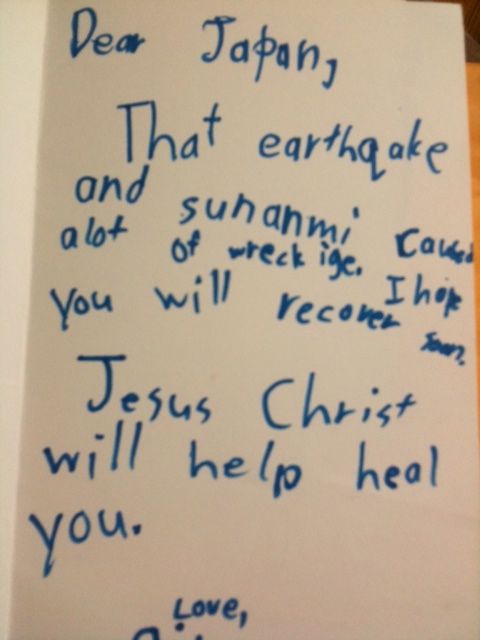 Dear Japan,
That earthqake
and sunanmi caused
alot of wreck ige. I hope
you will recover soon.
Jesus Christ
will help heal
you.
Love,